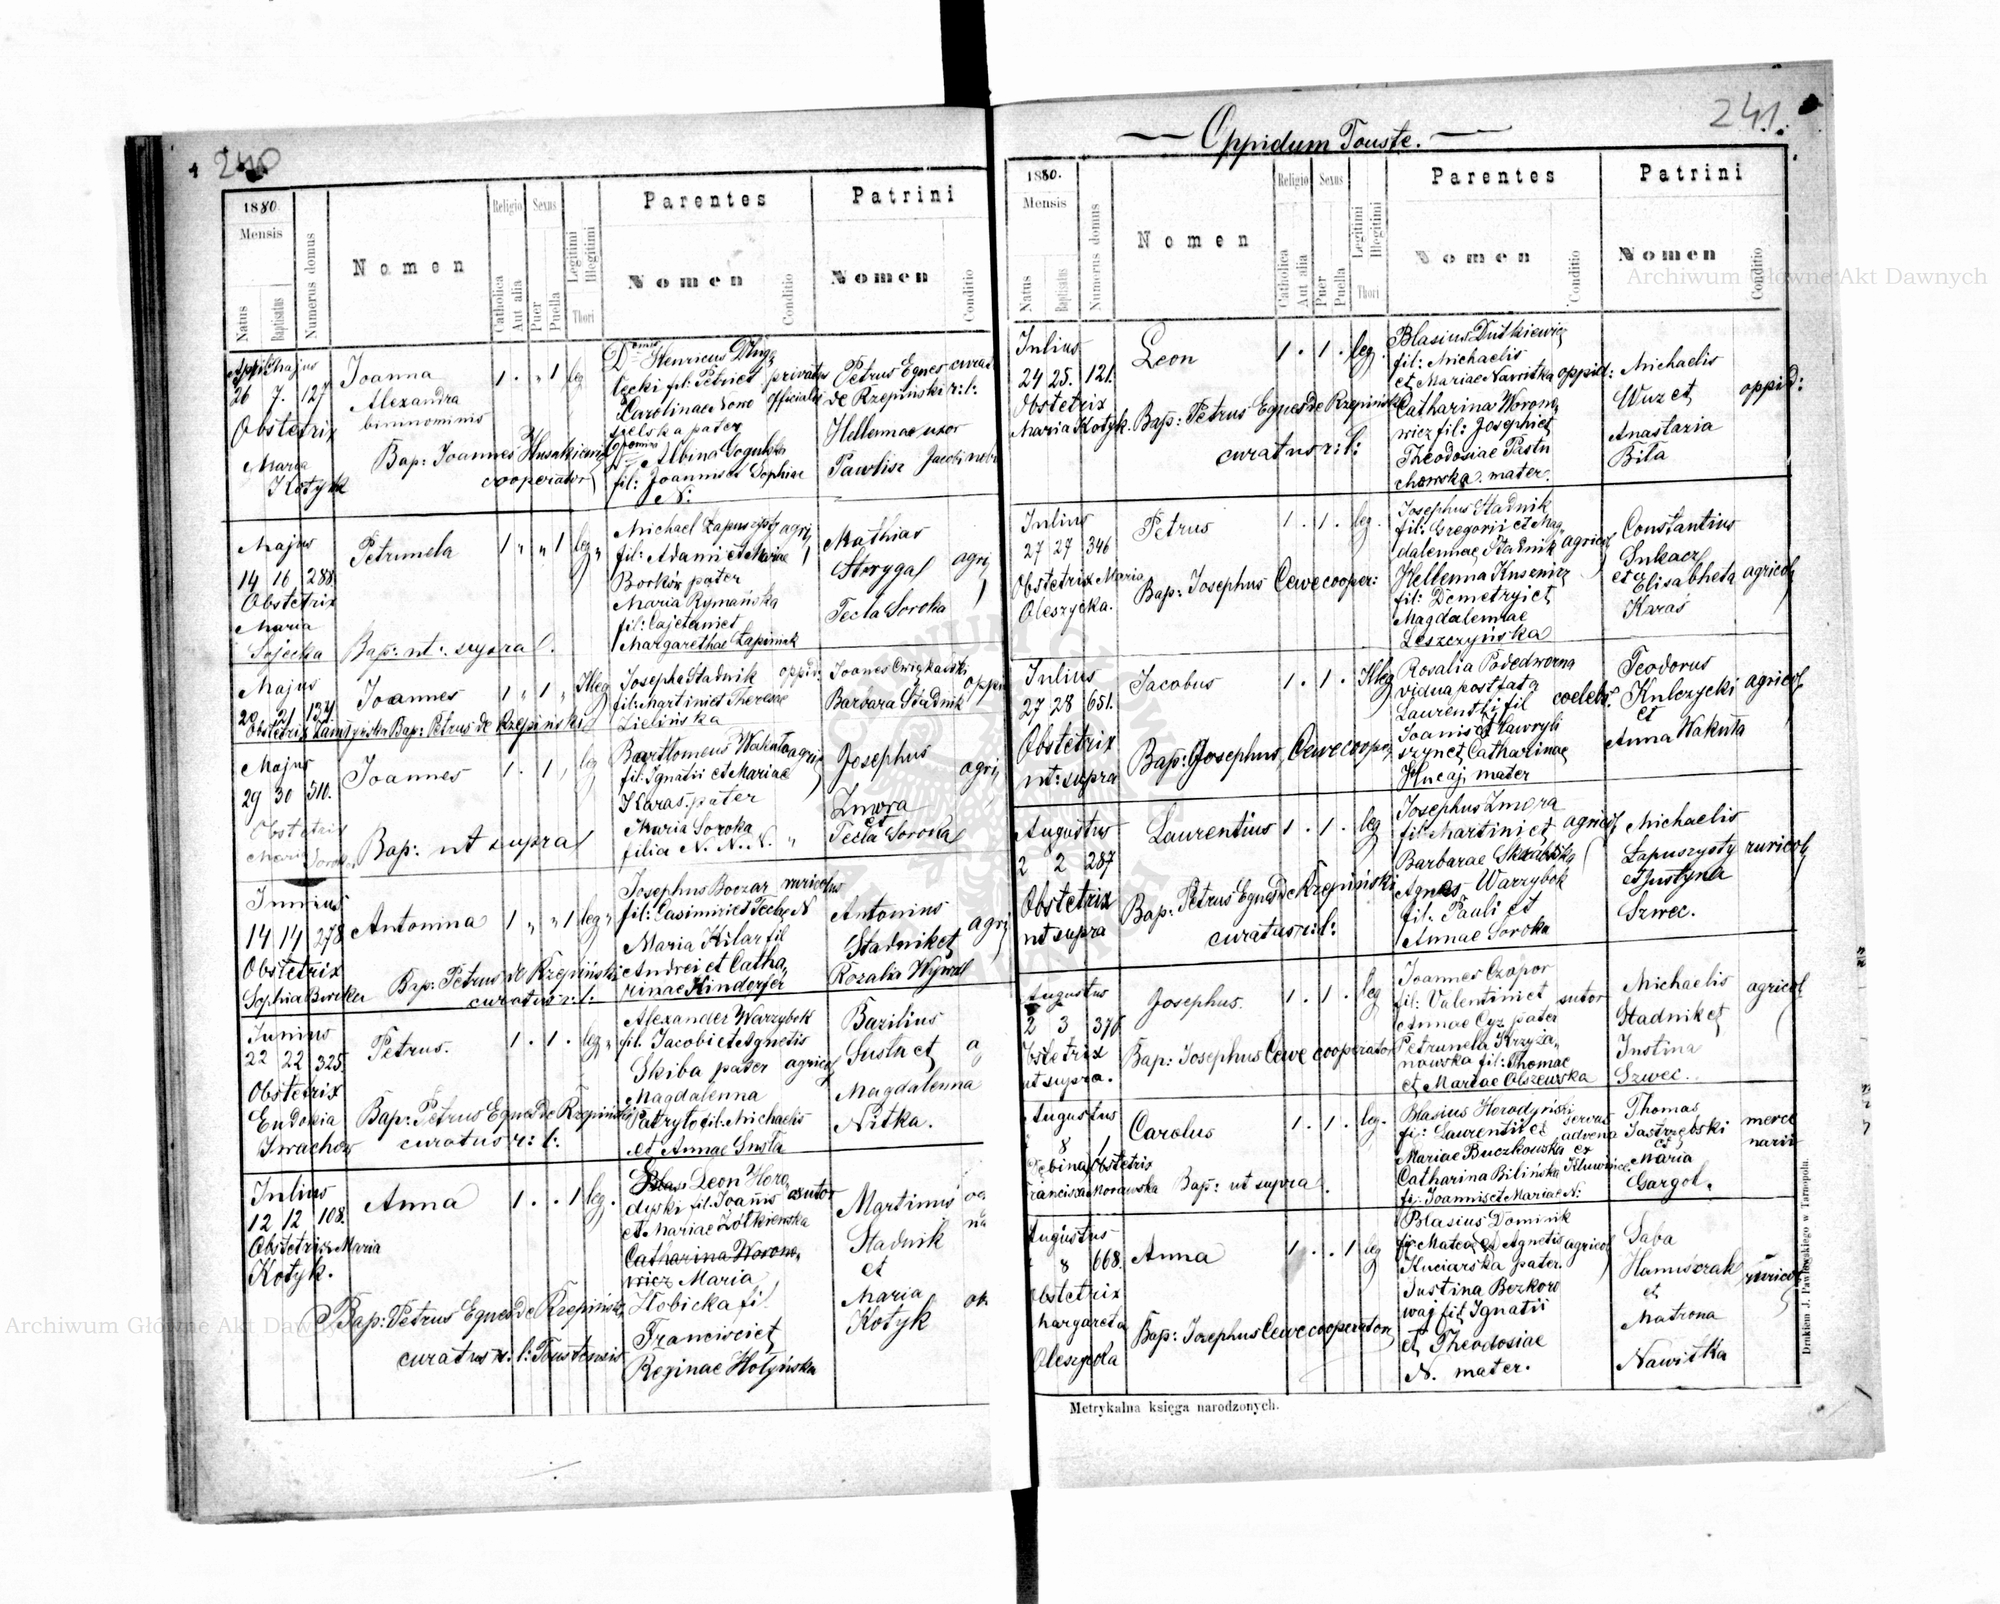 240
1880.
Mensis
Natus
Baptisatus
Numerus domus
Nomen
Religio
Catholica
Aut alia
Sexus
Puer
Puella
Legitimi
Illegitimi
Thori
Parentes
Nomen
Conditio
Patrini
Nomen
Conditio
Majus
26 7. 127
Obstetrix
Maria
Kotyk
Joanna
Alexandra
binnominis
Bap: Joannes Husakiewicz
cooperator
1 . „ 1 leg
Henricus Dług
lecki fil: Petri et privatus
Carolinae Nowo officialis
sielska pater
Albina Gogulska
fil: Joannis et Sophiae
N:
Petrus Eques curat
de Rzepiński r: l:
Hellenna uxor
Pawlisz Jacobi
Majus
14 16 288
Obstetrix
Maria
Sojecka
Petrunela
Bap: ut: supra
1 „ „ 1 leg „
Michael Łapuszysty agri
fil: Adami et Mariae
Borkow pater
Maria Rymańska
fil: Cajetani et
Margarethae Łapiniak
Mathias
Storygal agri
Tecla Soroka
Majus
20 21 132
Joannes
1 „ 1 „ Illeg
Bap: Petrus de Rzepiński
Josepha Stadnik oppid:
fil: Martini et Theresae
Zielińska
Barbara Stadnik
Majus
29 30 510.
Obstetrix
Joannes
Bap: ut supra
1 . 1 , leg
Bartłomeus Wakuta agri
fil: Ignatii et Mariae
Karaś pater
Maria Soroka
filia N. N. N. „
Josephus agri
Zmora
et
Tecla Soroka
Junius
14 14 278
Obstetrix
Sophia
Antonina
Bap: Petrus de Rzepiński
curatus r: l:
1 „ „ 1 leg „
Josephus Boczar ruricolus
fil: Casimiri et Teclae N
Maria Kilar fil
Andrei et Catha„
rinae Kindorfer
Antonius agri
Stadnik et
Rozalia
Junius
22 22 325.
Obstetrix
Eudokia
Iwachów
Petrus.
Bap: Petrus Eques de Rzepiński
curatus r: l:
1 . 1 . leg „
Alexander Warzybok
fil: Jacobi et Agnetis
Skiba pater agricol
Magdalenna
Patryło fil: Michaelis
et Annae Susta
Bazilius
Susta et
Magdalenna
Nitka.
Julius
12 12 108.
Obstetrix Maria
Kotyk.
Anna
Bap: Petrus Eques de Rzepiński
curatus r: l: Toustensis
1 . . 1 leg .
Leon Horo„
dyski fil: Joannis sutor
et Mariae Żółkiewska
Catharina Worono„
wicz Maria
Hobicka fil
Francisci et
Reginae Hołyńska
Martinus
Stadnik
et
Maria
Kotyk
Oppidum Touste.
241.
1880.
Mensis
Natus
Baptisatus
Numerus domus
Nomen
Religio
Catholica
Aut alia
Sexus
Puer
Puella
Legitimi
Illegitimi
Thori
Parentes
Nomen
Conditio
Patrini
Nomen
Conditio
Julius
24 25. 121.
Obstetrix
Maria Kotyk.
Leon
Bap: Petrus Eques de Rzepiński
curatus r: l:
1 . 1 . leg.
Blasius Dutkiewicz
fil: Michaelis
et Mariae Nawitka oppid:
Catharina Worono„
wicz fil: Josephi et
Theodosiae Pastu
chowska. mater.
Michaelis
Wuzet oppid:
Anastazia
Biła
Julius
27 27 346
Obstetrix Maria
Oleszycka.
Petrus
Bap: Josephus Cewe cooper:
1 . 1 . leg.
Josephus Stadnik
fil: Gregorii et Mag„
dalennae Stadnik agricol
Hellenna Kusznicz
fil: Demetryi et
Magdalennae
Leszczyńska
Constantius
Łukacz
et
Elisabheta agricol
Karaś
Julius
27 28 651.
Obstetrix
ut: supra
Jacobus
Bap: Josephus Cewe cooper
1 . 1 . Illeg
Rosalia Podedworna
vidua post fata
Laurentii fil coelebs.
Joannis et Hawryli
szyn et Catharinae
Hucaj, mater
Teodorus
Kulczycki agricol
et
Anna Wakuta
Augustus
2 2 287
Obstetrix
ut supra
Laurentius
Bap: Petrus Eques de Rzepiński
curatus r: l:
1 . 1 . leg
Josephus Zmora
fil: Martini et agricol
Barbarae
Agnes Warzybok
fil: Pauli et
Annae Soroka
Michaelis
Łapuszysty ruricol
et Justyna
Szwec.
Augustus
2 3 376
Obstetrix
ut supra.
Josephus.
Bap: Josephus Cewe cooperator
1 . 1 . leg
Joannes Czopor
fil: Valentini et sutor
Annae Cyz pater
Petrunela Krzyża„
nowska fil: Thomae
et Mariae Olszewska
Michaelis agricol
Stadnik et
Justina
Szwec..
Augustus
8
Obstetrix
Franciszka Morawska
Carolus
Bap: ut supra.
1 . 1 . leg.
Blasius Horodyński servus
fi: Laurentii et advena
Mariae Buczkowska ex
Catharina Bilińska Kluwince
fi: Joannis et Mariae N:
Thomas merce
Jastrzębski narii
et
Maria
Gargol.
Augustus
8 668.
Obstetrix
Margareta
Anna
Bap: Josephus Cewe cooperator
1 . . 1 leg
Blasius Dominik
fi: Matea et Agnetis agricol
Kuciarska pater.
Justina Bezkoro
waj fil: Ignatii
et Theodosiae
N. mater.
Saba
Hamiszrak ruricol
et
Matrona
Nawitka
Metrykalna księga narodzonych.
Drukiem J. Pawłowskiego w Tarnopolu.
Archiwum Główne Akt Dawnych
Archiwum Główne Akt Dawnych